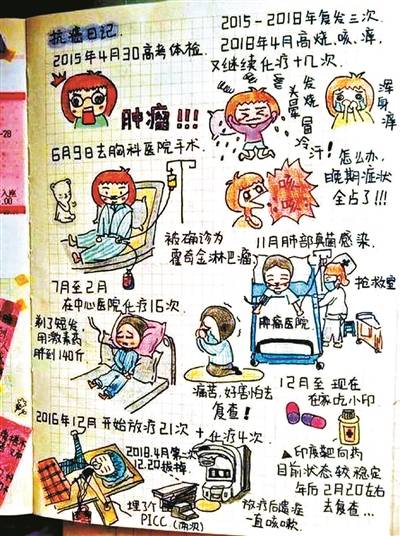 抗癌日记
2015年4月30高考体检.
肿瘤!!!
6月9日去胸科医院手术.
被确诊为
霍奇金淋巴瘤
7月至2月
在中心医院化疗16次
剃了短发
用激素高
胖到140斤
痛苦,好害怕去
复查!
2016年12月开始放疗21次+化疗4次
2018.4月第一次
2.20拔掉.
埋3个
PICC(两次)
放疗后腐症
一直咳嗽.
2015-2018年复发三次.
2018年4月高烧、咳、痒,
又继续化疗十几次
发烧
头晕
冒
冷汗!
浑身痒
怎么办,
晚期症状
全占了!!!
咳
咳
11月肺部真菌感染.
抢救室
肿瘤医院
12月至现在
在家吃小印
▲印度靶向药
目前状态较稳定
年后2月20左右
去复查...
-28
入座
.00